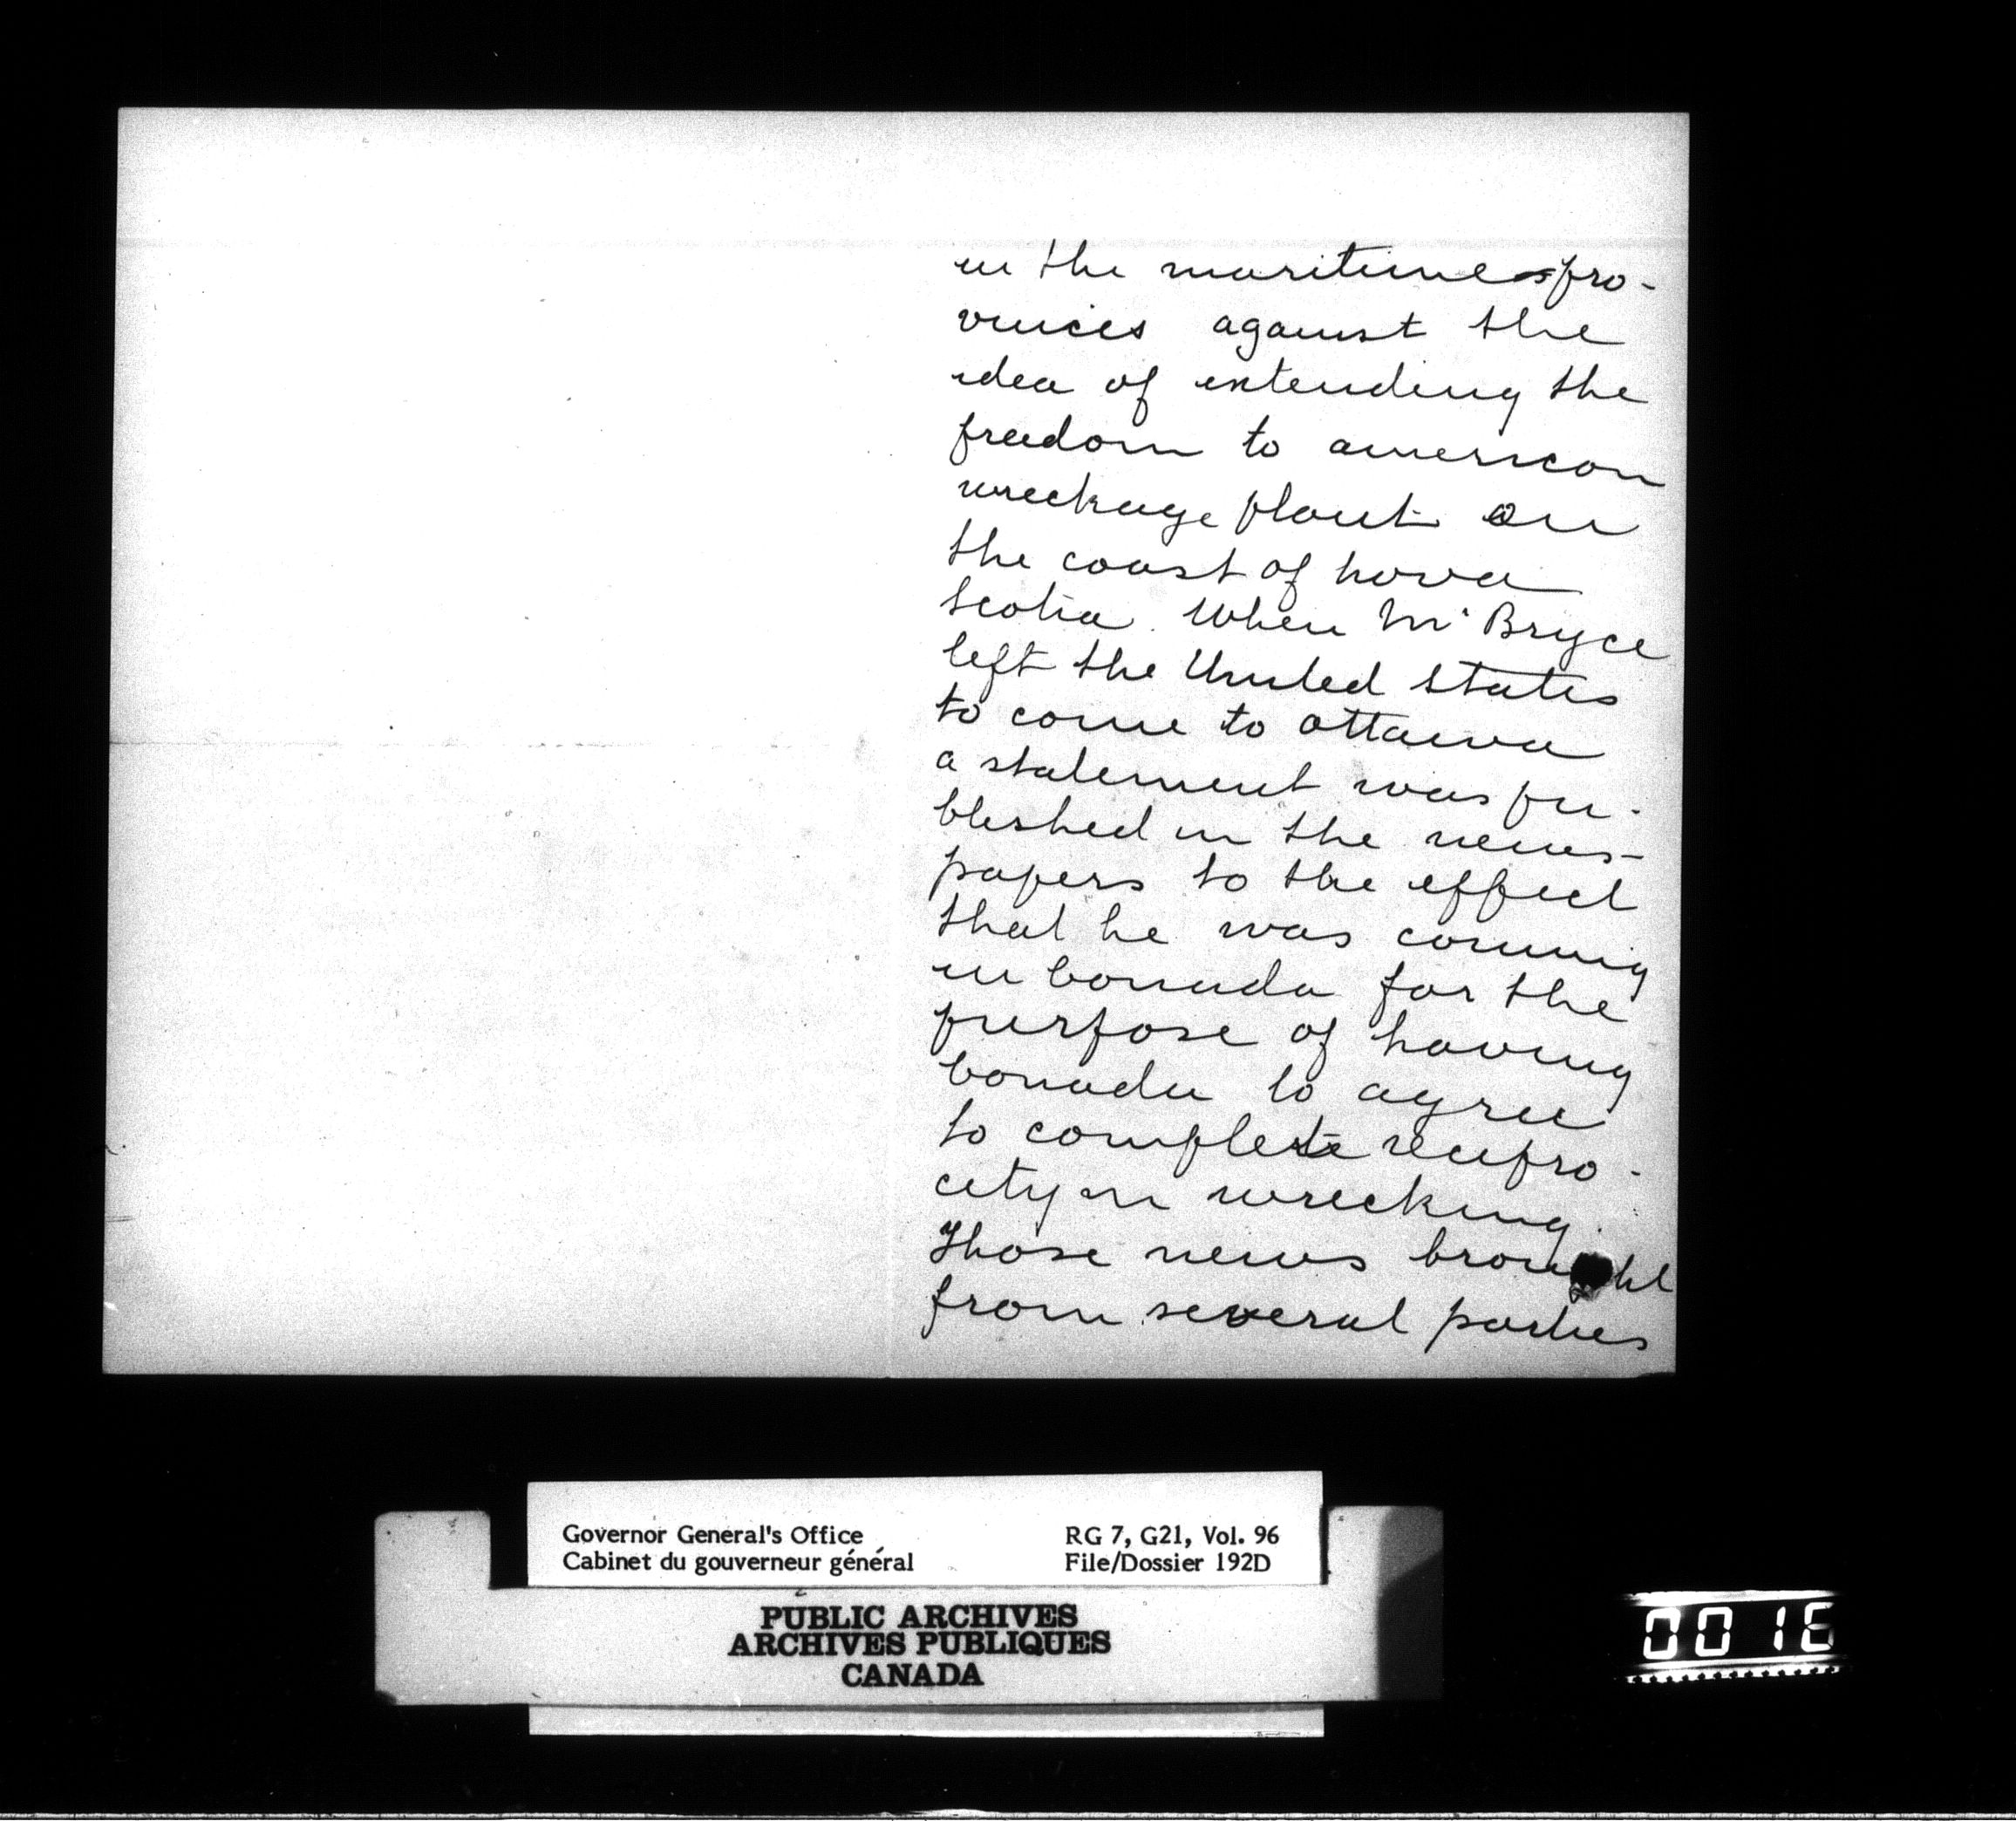 in the maritime pro-
vinces against the
idea of extending the
freedom to american
wreckage plant on
the coast of nova
scotia. When Mr Bryce
left the United States
to come to ottawa
a statement was pu-
blished in the news-
papers to the effect
that he was coming
in Canada for the
purpose of having
Canada to agree
to complete recipro-
city in wrecking.
Those news brought
from several parties
Governor General's Office RG 7, G21, Vol. 96
Cabinet du gouverneur général File/Dossier 192D
PUBLIC ARCHIVES
ARCHIVES PUBLIQUES
CANADA
0016